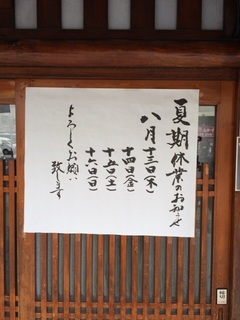 夏期休業のお知らせ
八月十三日(木)
十四日(金)
十五日(土)
十六日(日)
よろしくお願い
致します